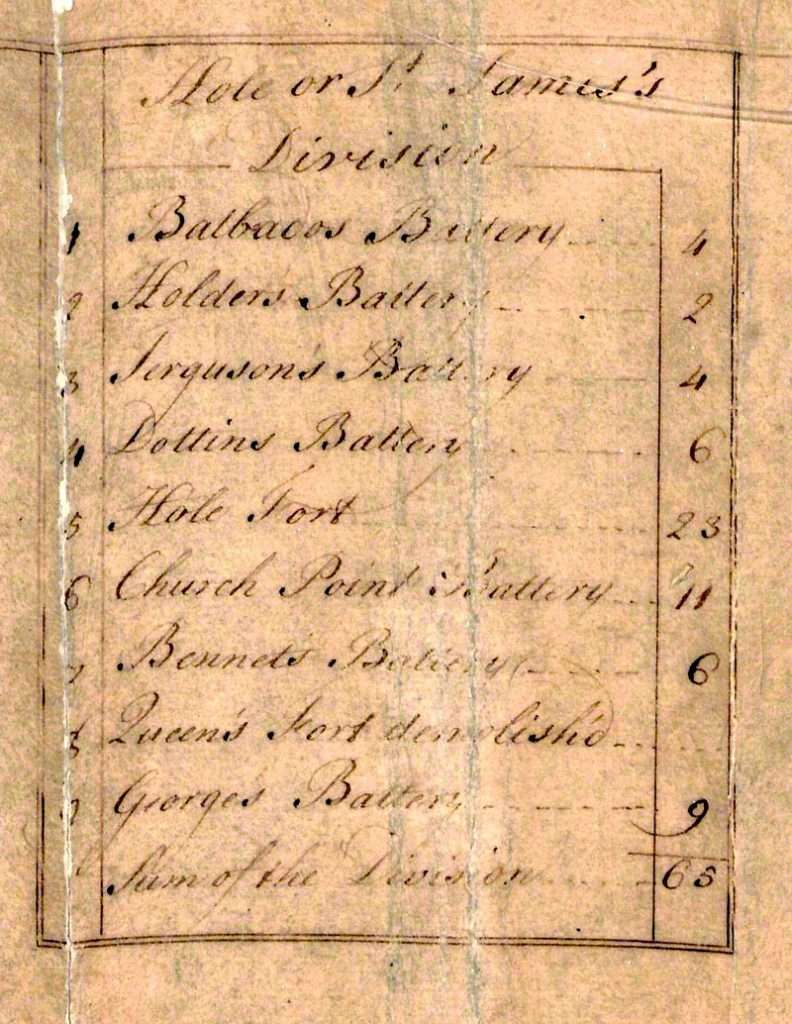 Hole or St James's
Division
1 Balbados Battery 4
2 Holders Battery 2
3 Ferguson's Battery 4
4 Dottins Battery 6
5 Hole Fort 23
6 Church Point Battery 11
7 Bennet's Battery 6
8 Queen's Fort demolish'd
9 George's Battery 9
Sum of the Division 65